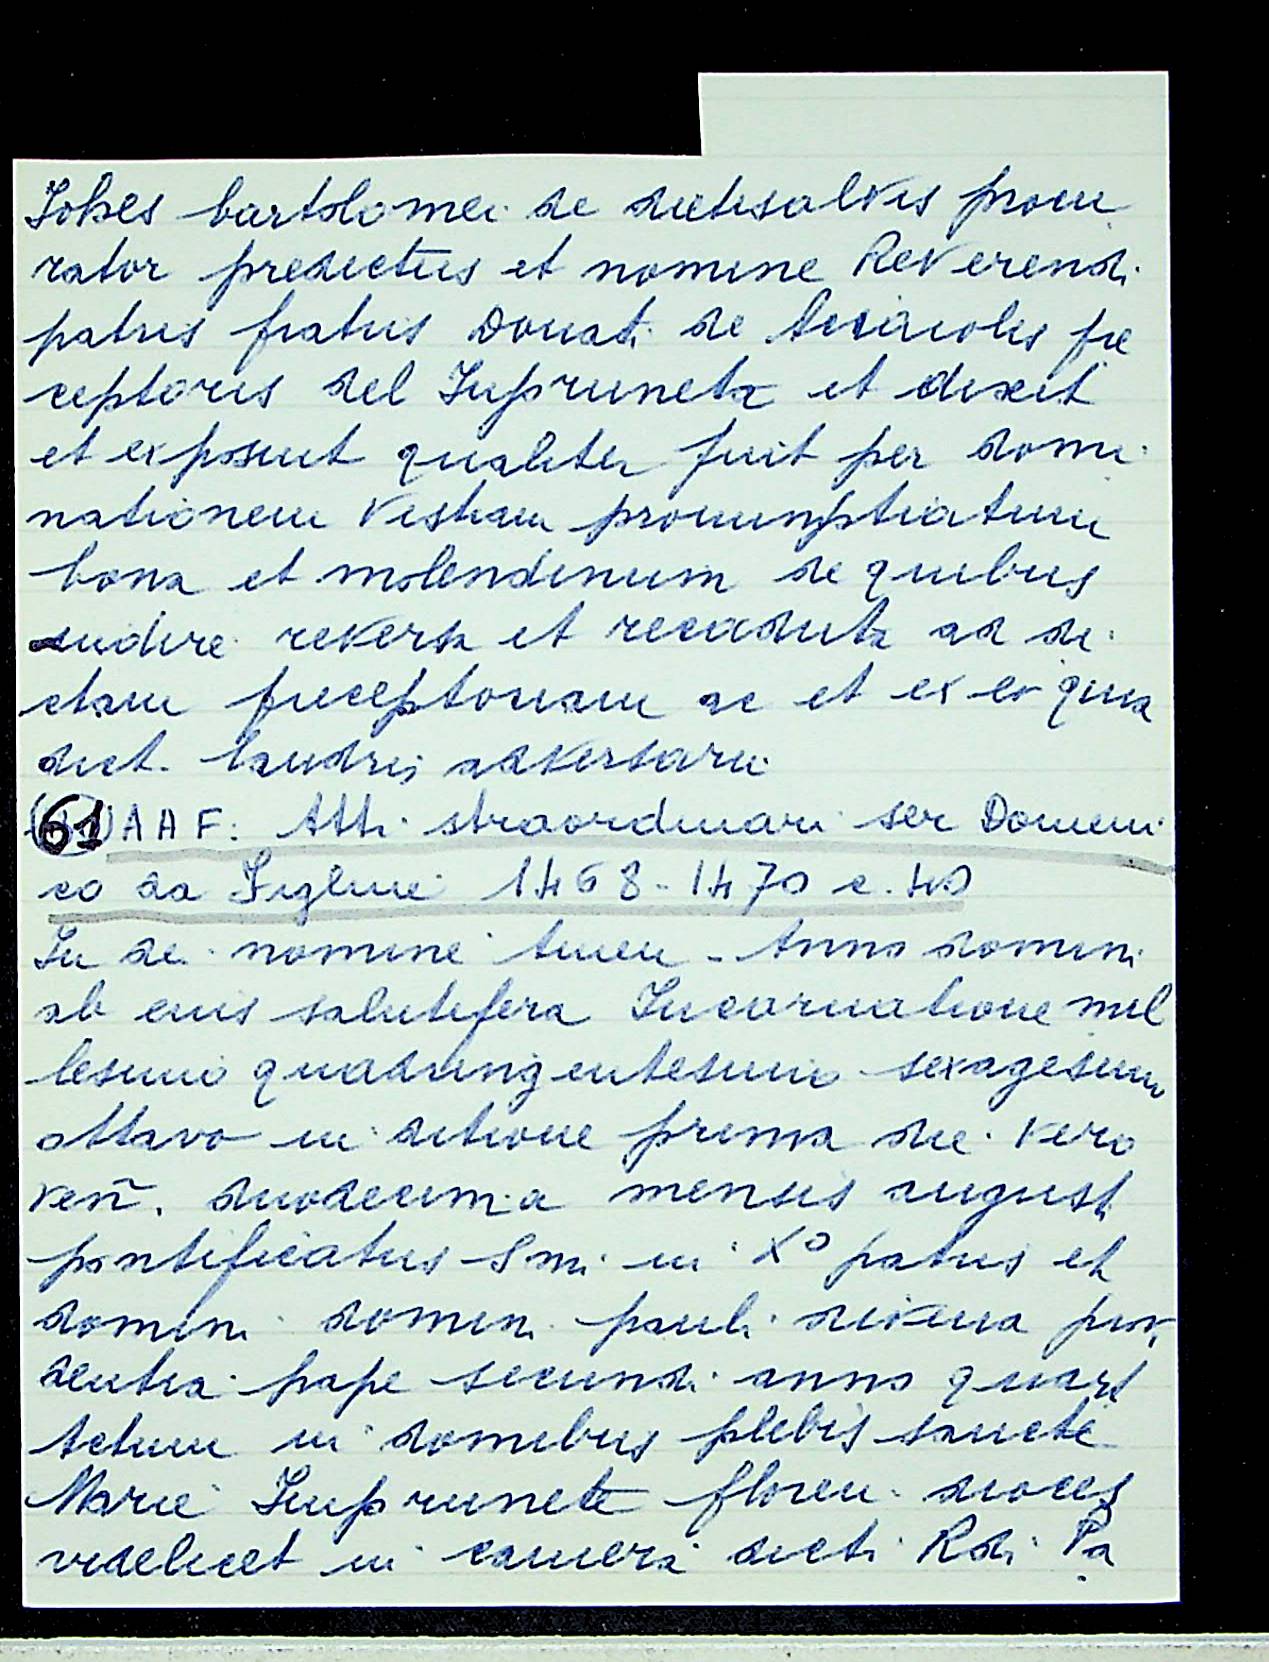 Johes bartolomei de dietisalvis procu
rator predictus et nomine Reverendi
patris fratris Donati de
ceptoris del Inpruneta et dixit
et exposuit qualiter fuit per domi
nationem vestram pronumptiatum
bona et molendinum de quibus
reversa et recaduta ad di
ctam preceptoriam ac et ex eo quia
dict. adversarii
(61) AAF: Atti straordinari ser Domeni
co da Figline 1468-1470 c. 40
In dei nomine Amen - Anno domini
ab eius salutifera Incarnatione mil
lesimo quadringentesimo sexagesimo
ottavo inditione prima die vero
ven. duodecima mensis augusti
pontificatus Smi in Xo patris et
domini domini pauli divina provi
dentia pape secundi anno quart
Actum in domibus plebis sancte
Marie Imprunete floren. dioces
videlicet in camera dicti Rdi Pa